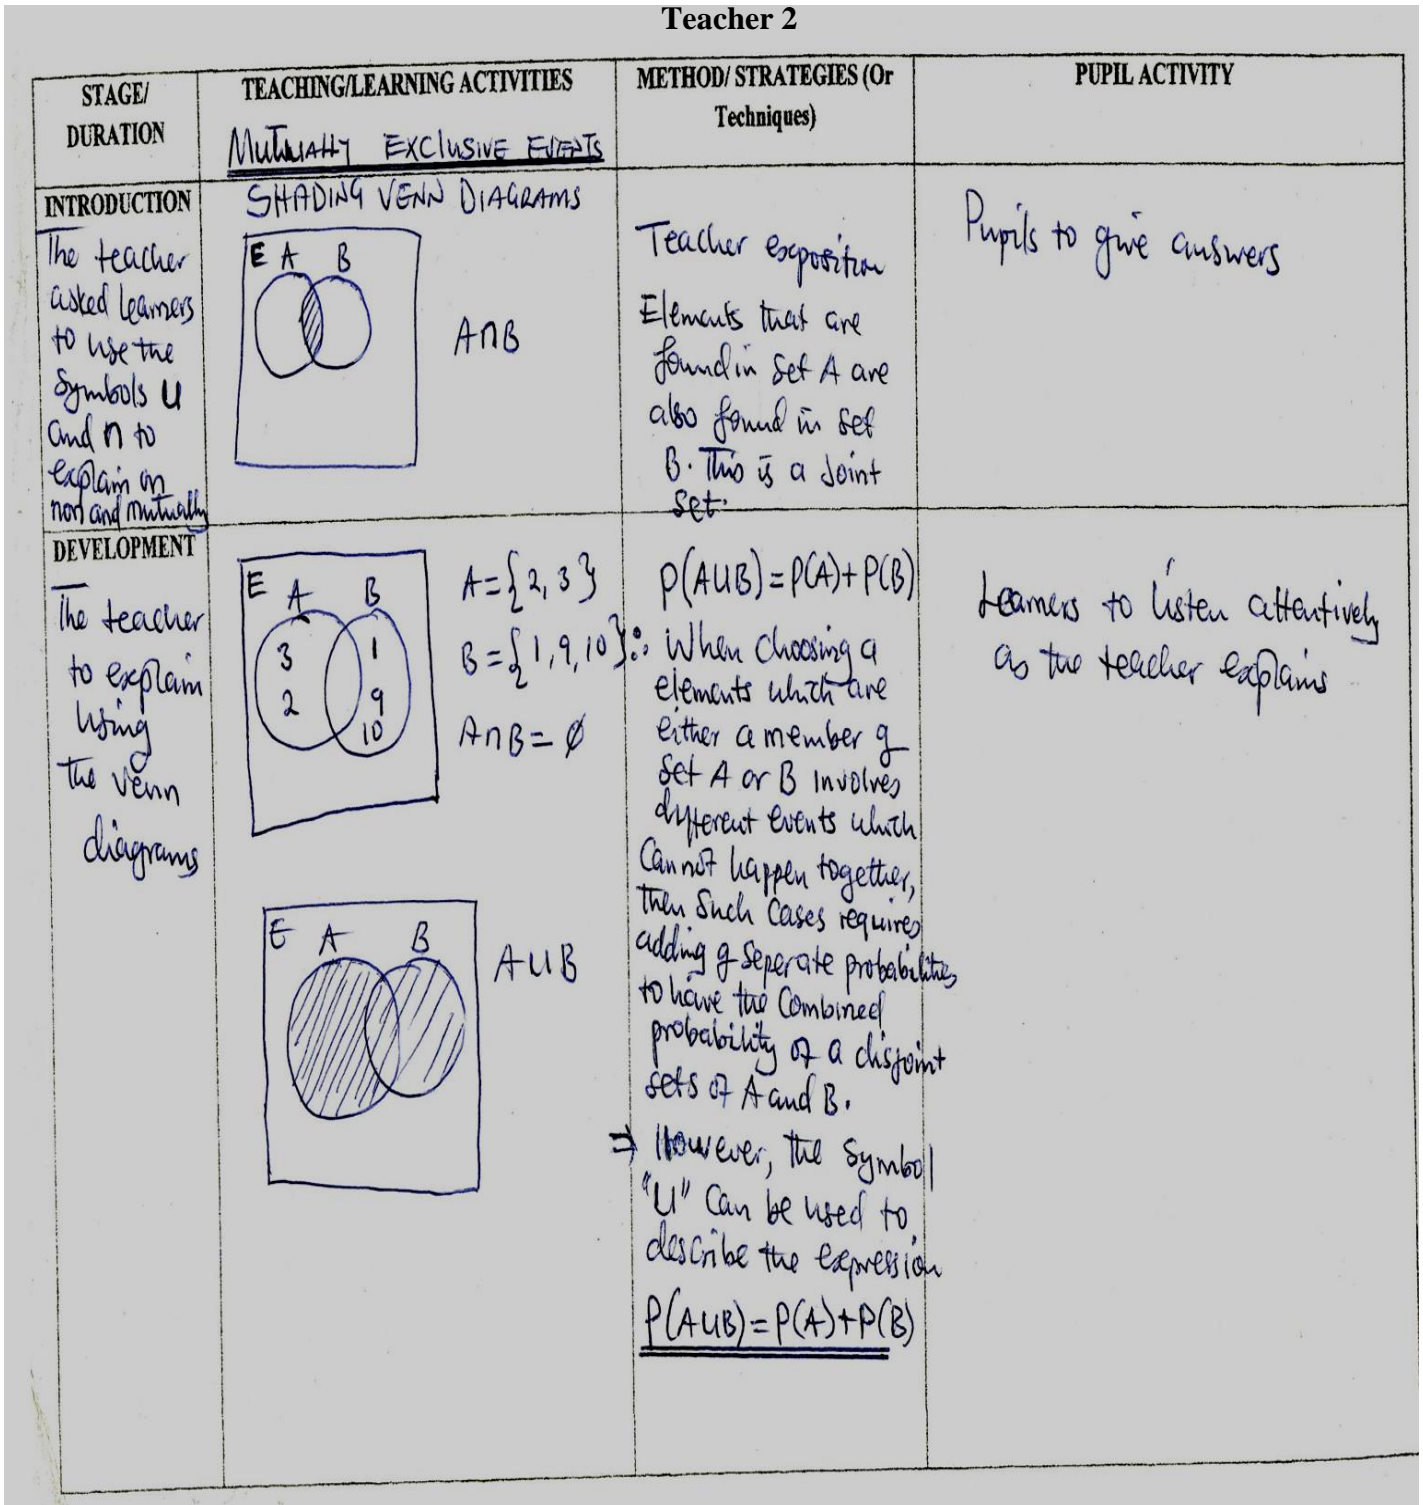 Teacher 2
STAGE/
DURATION
TEACHING/LEARNING ACTIVITIES
MUTUALLY EXCLUSIVE EVENTS
METHOD/ STRATEGIES (Or
Techniques)
PUPIL ACTIVITY
INTRODUCTION
The teacher
asked learners
to use the
Symbols U
and n to
explain on
non and mutually
SHADING VENN DIAGRAMS
E A B
A∩B
Teacher exposition
Elements that are
found in set A are
also found in set
B. This is a Joint
set.
Pupils to give answers
DEVELOPMENT
The teacher
to explain
using
the venn
diagrams
E A B
3 1
2 9
10
A={2, 3}
B={1, 9, 10}
A∩B= ∅
E A B
A∪B
P(A∪B)=P(A)+P(B)
∴ When choosing a
elements which are
either a member of
set A or B involves
different events which
Cannot happen together,
then such cases requires
adding of seperate probabilities
to have the combined
probability of a disjoint
sets of A and B.
⇒ However, the symboll
"U" can be used to
describe the expression
P(A∪B)=P(A)+P(B)
Learners to listen attentively
as the teacher explains